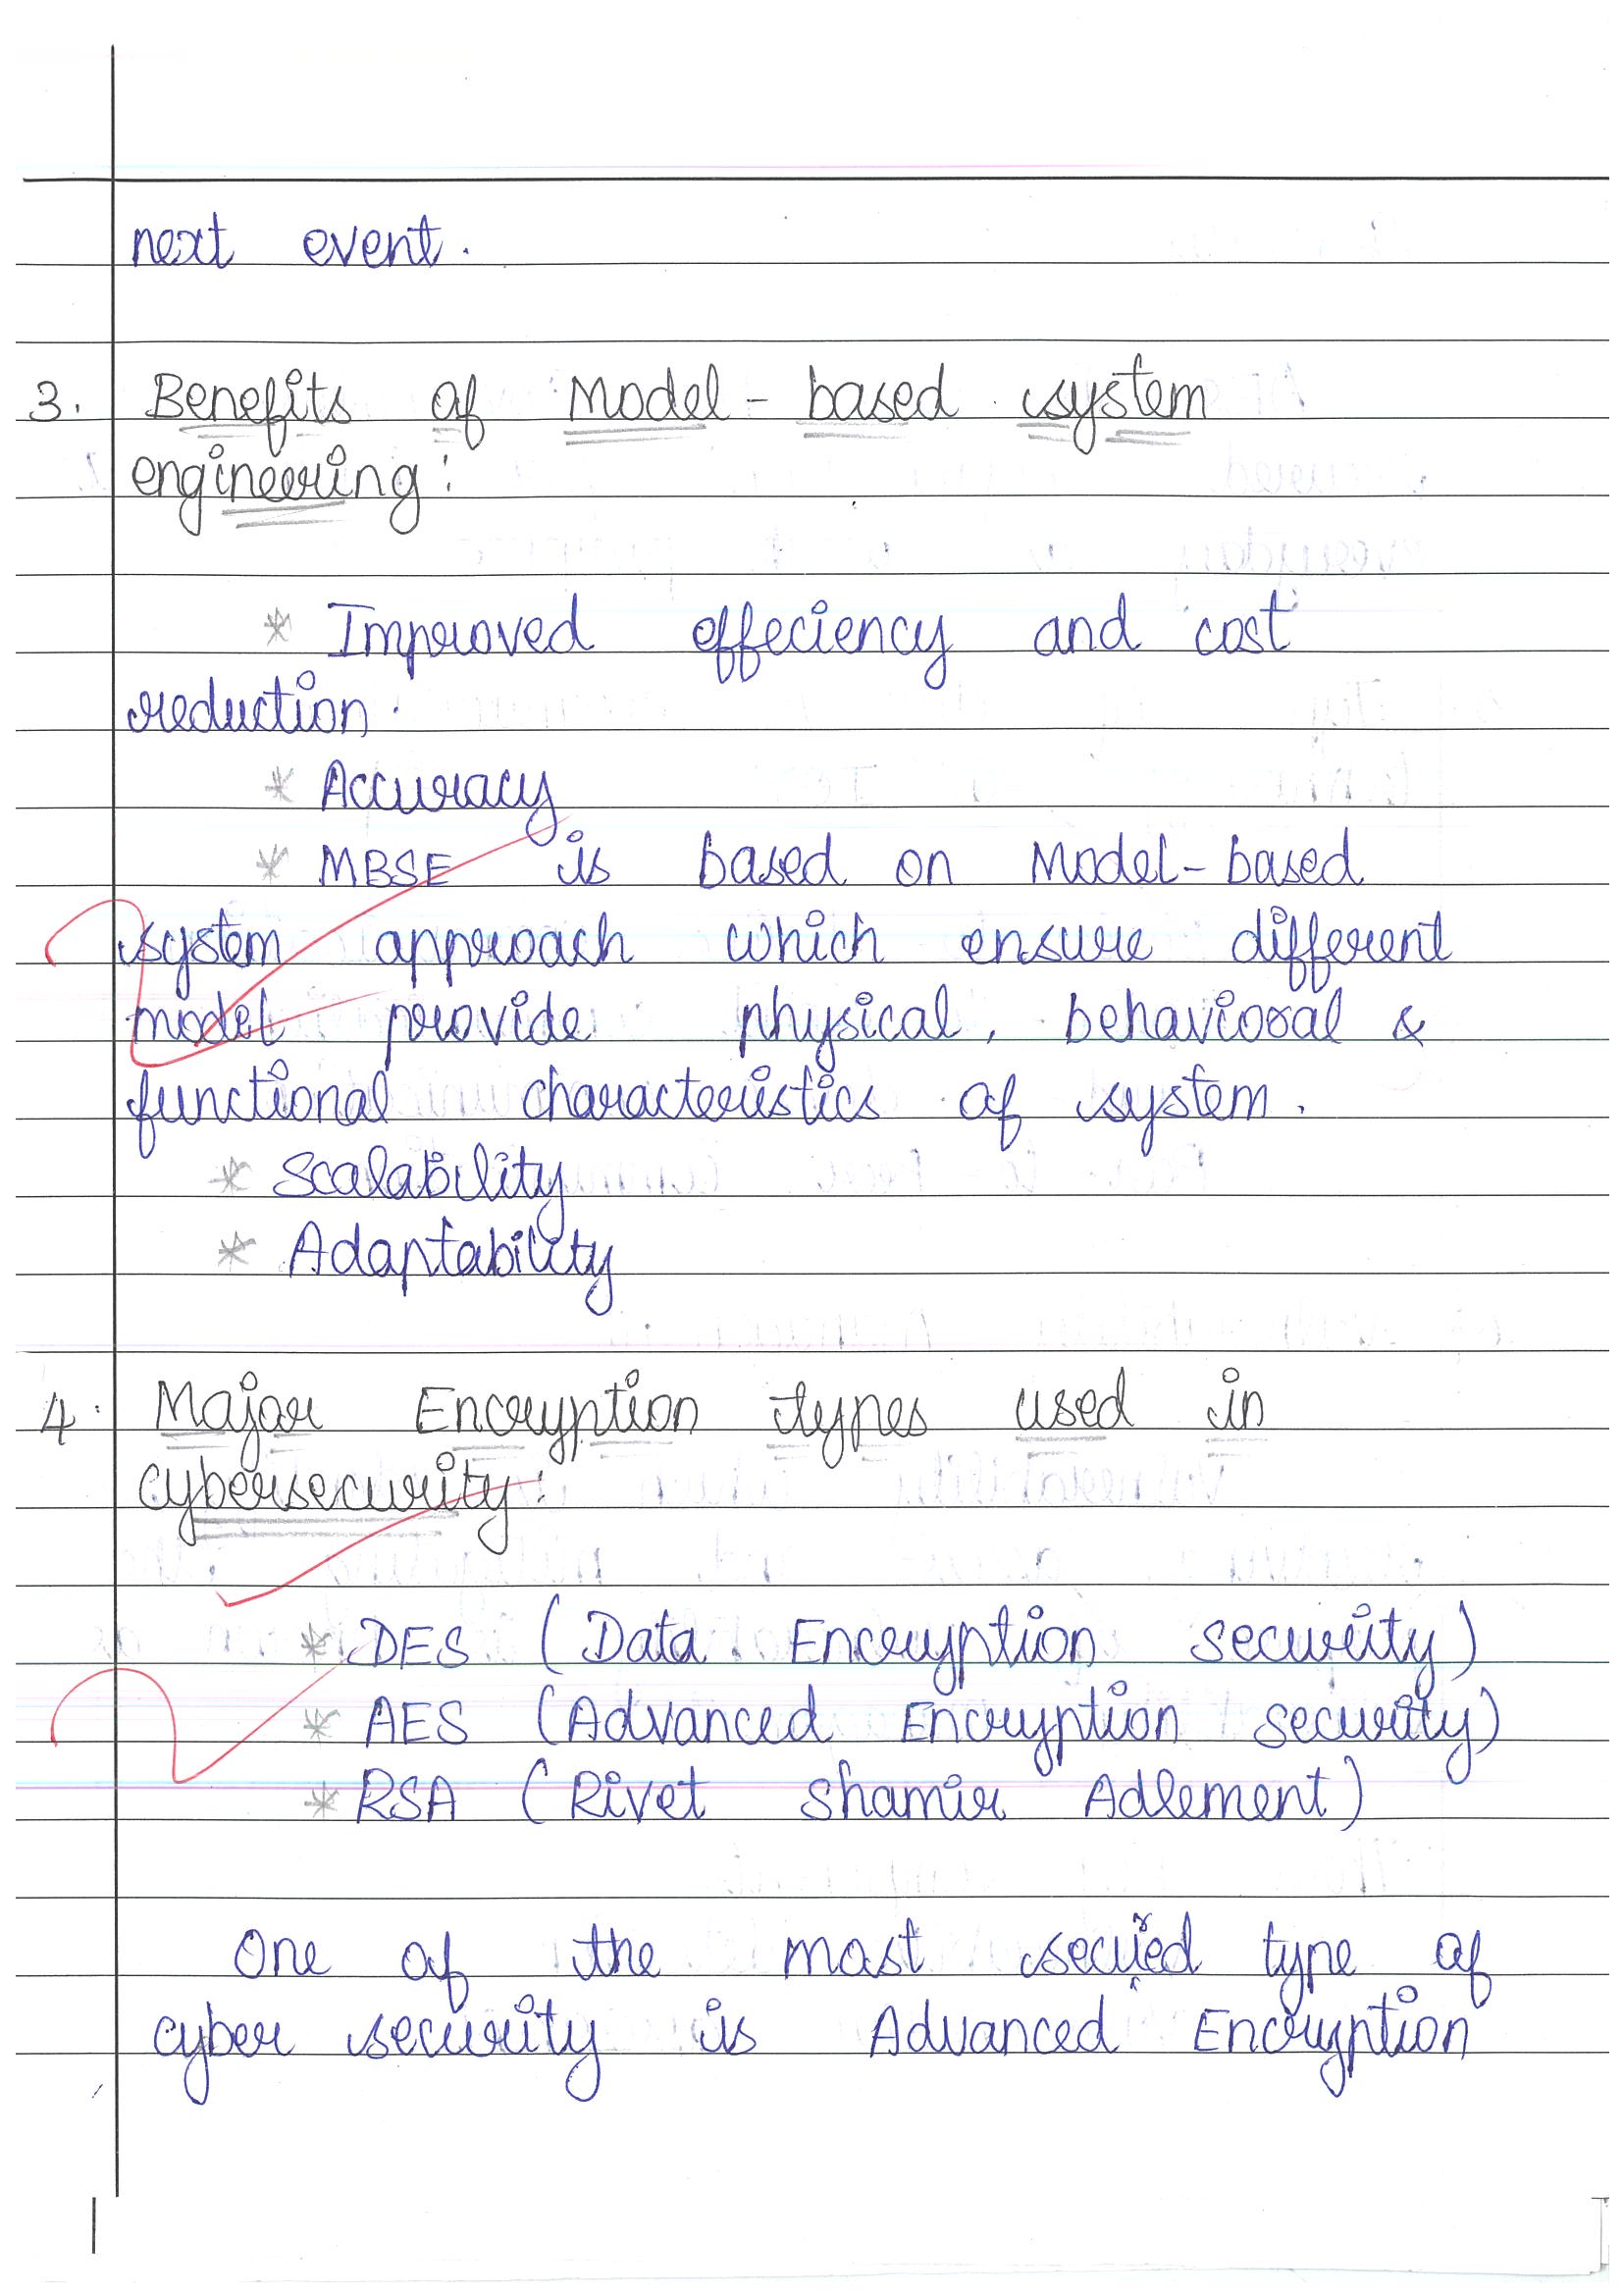 next event.
3. Benefits of Model-based system
engineering:
* Improved effeciency and cost
reduction.
* Accuracy
* MBSE is based on Model-based
system approach which ensure different
model provide physical, behavioral &
functional characteristics of system.
* Scalability
* Adaptability
4. Major Encryption types used in
cybersecurity:
* DES (Data Encryption security)
* AES (Advanced Encryption security)
* RSA (Rivet Shamir Adlement)
One of the most secured type of
cyber security is Advanced Encryption